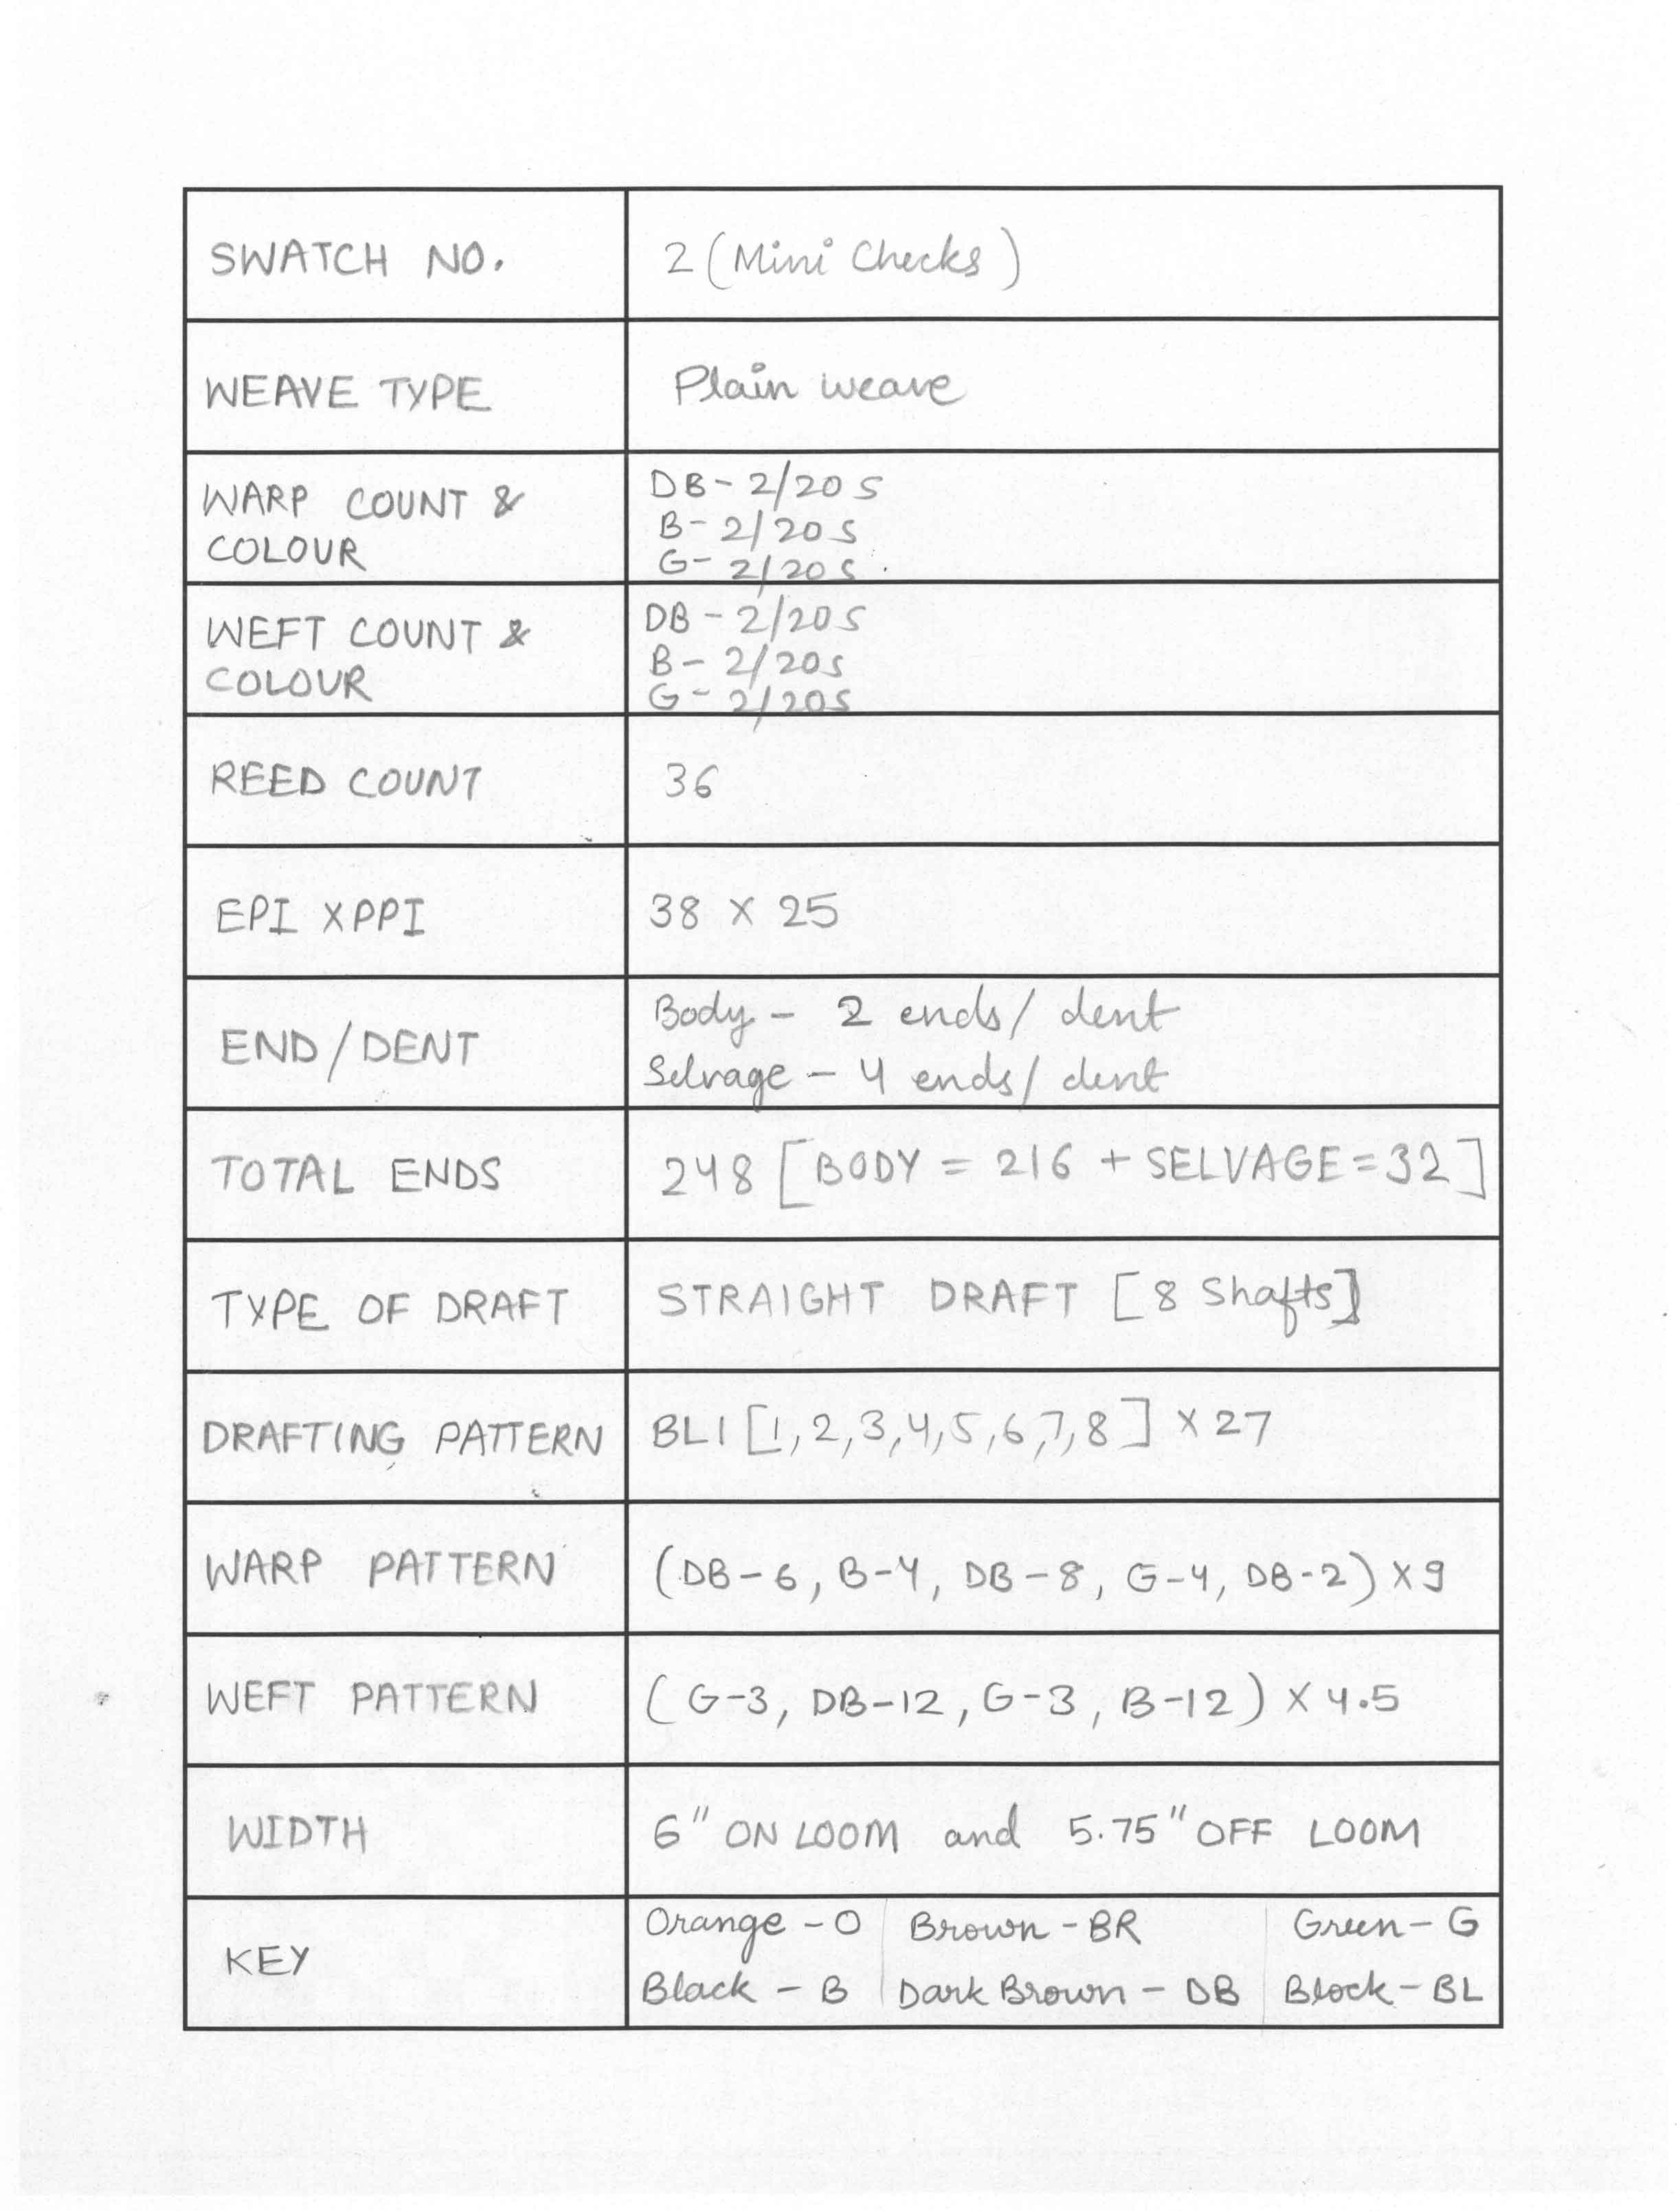 SWATCH NO.
2 (Mini Checks)
WEAVE TYPE
Plain weave
WARP COUNT &
COLOUR
DB - 2/20 S
B - 2/20 S
G - 2/20 S
WEFT COUNT &
COLOUR
DB - 2/20 S
B - 2/20s
G - 2/20S
REED COUNT
36
EPI X PPI
38 X 25
END/DENT
Body - 2 ends/ dent
Selvage - 4 ends/ dent
TOTAL ENDS
248 [BODY = 216 + SELVAGE = 32]
TYPE OF DRAFT
STRAIGHT DRAFT [8 Shafts]
DRAFTING PATTERN
BL1 [1,2,3,4,5,6,7,8] X 27
WARP PATTERN
(DB-6, B-4, DB-8, G-4, DB-2) X 9
WEFT PATTERN
(G-3, DB-12, G-3, B-12) X 4.5
WIDTH
6" ON LOOM and 5.75" OFF LOOM
KEY
Orange - O Brown - BR Green - G
Black - B Dark Brown - DB Block - BL